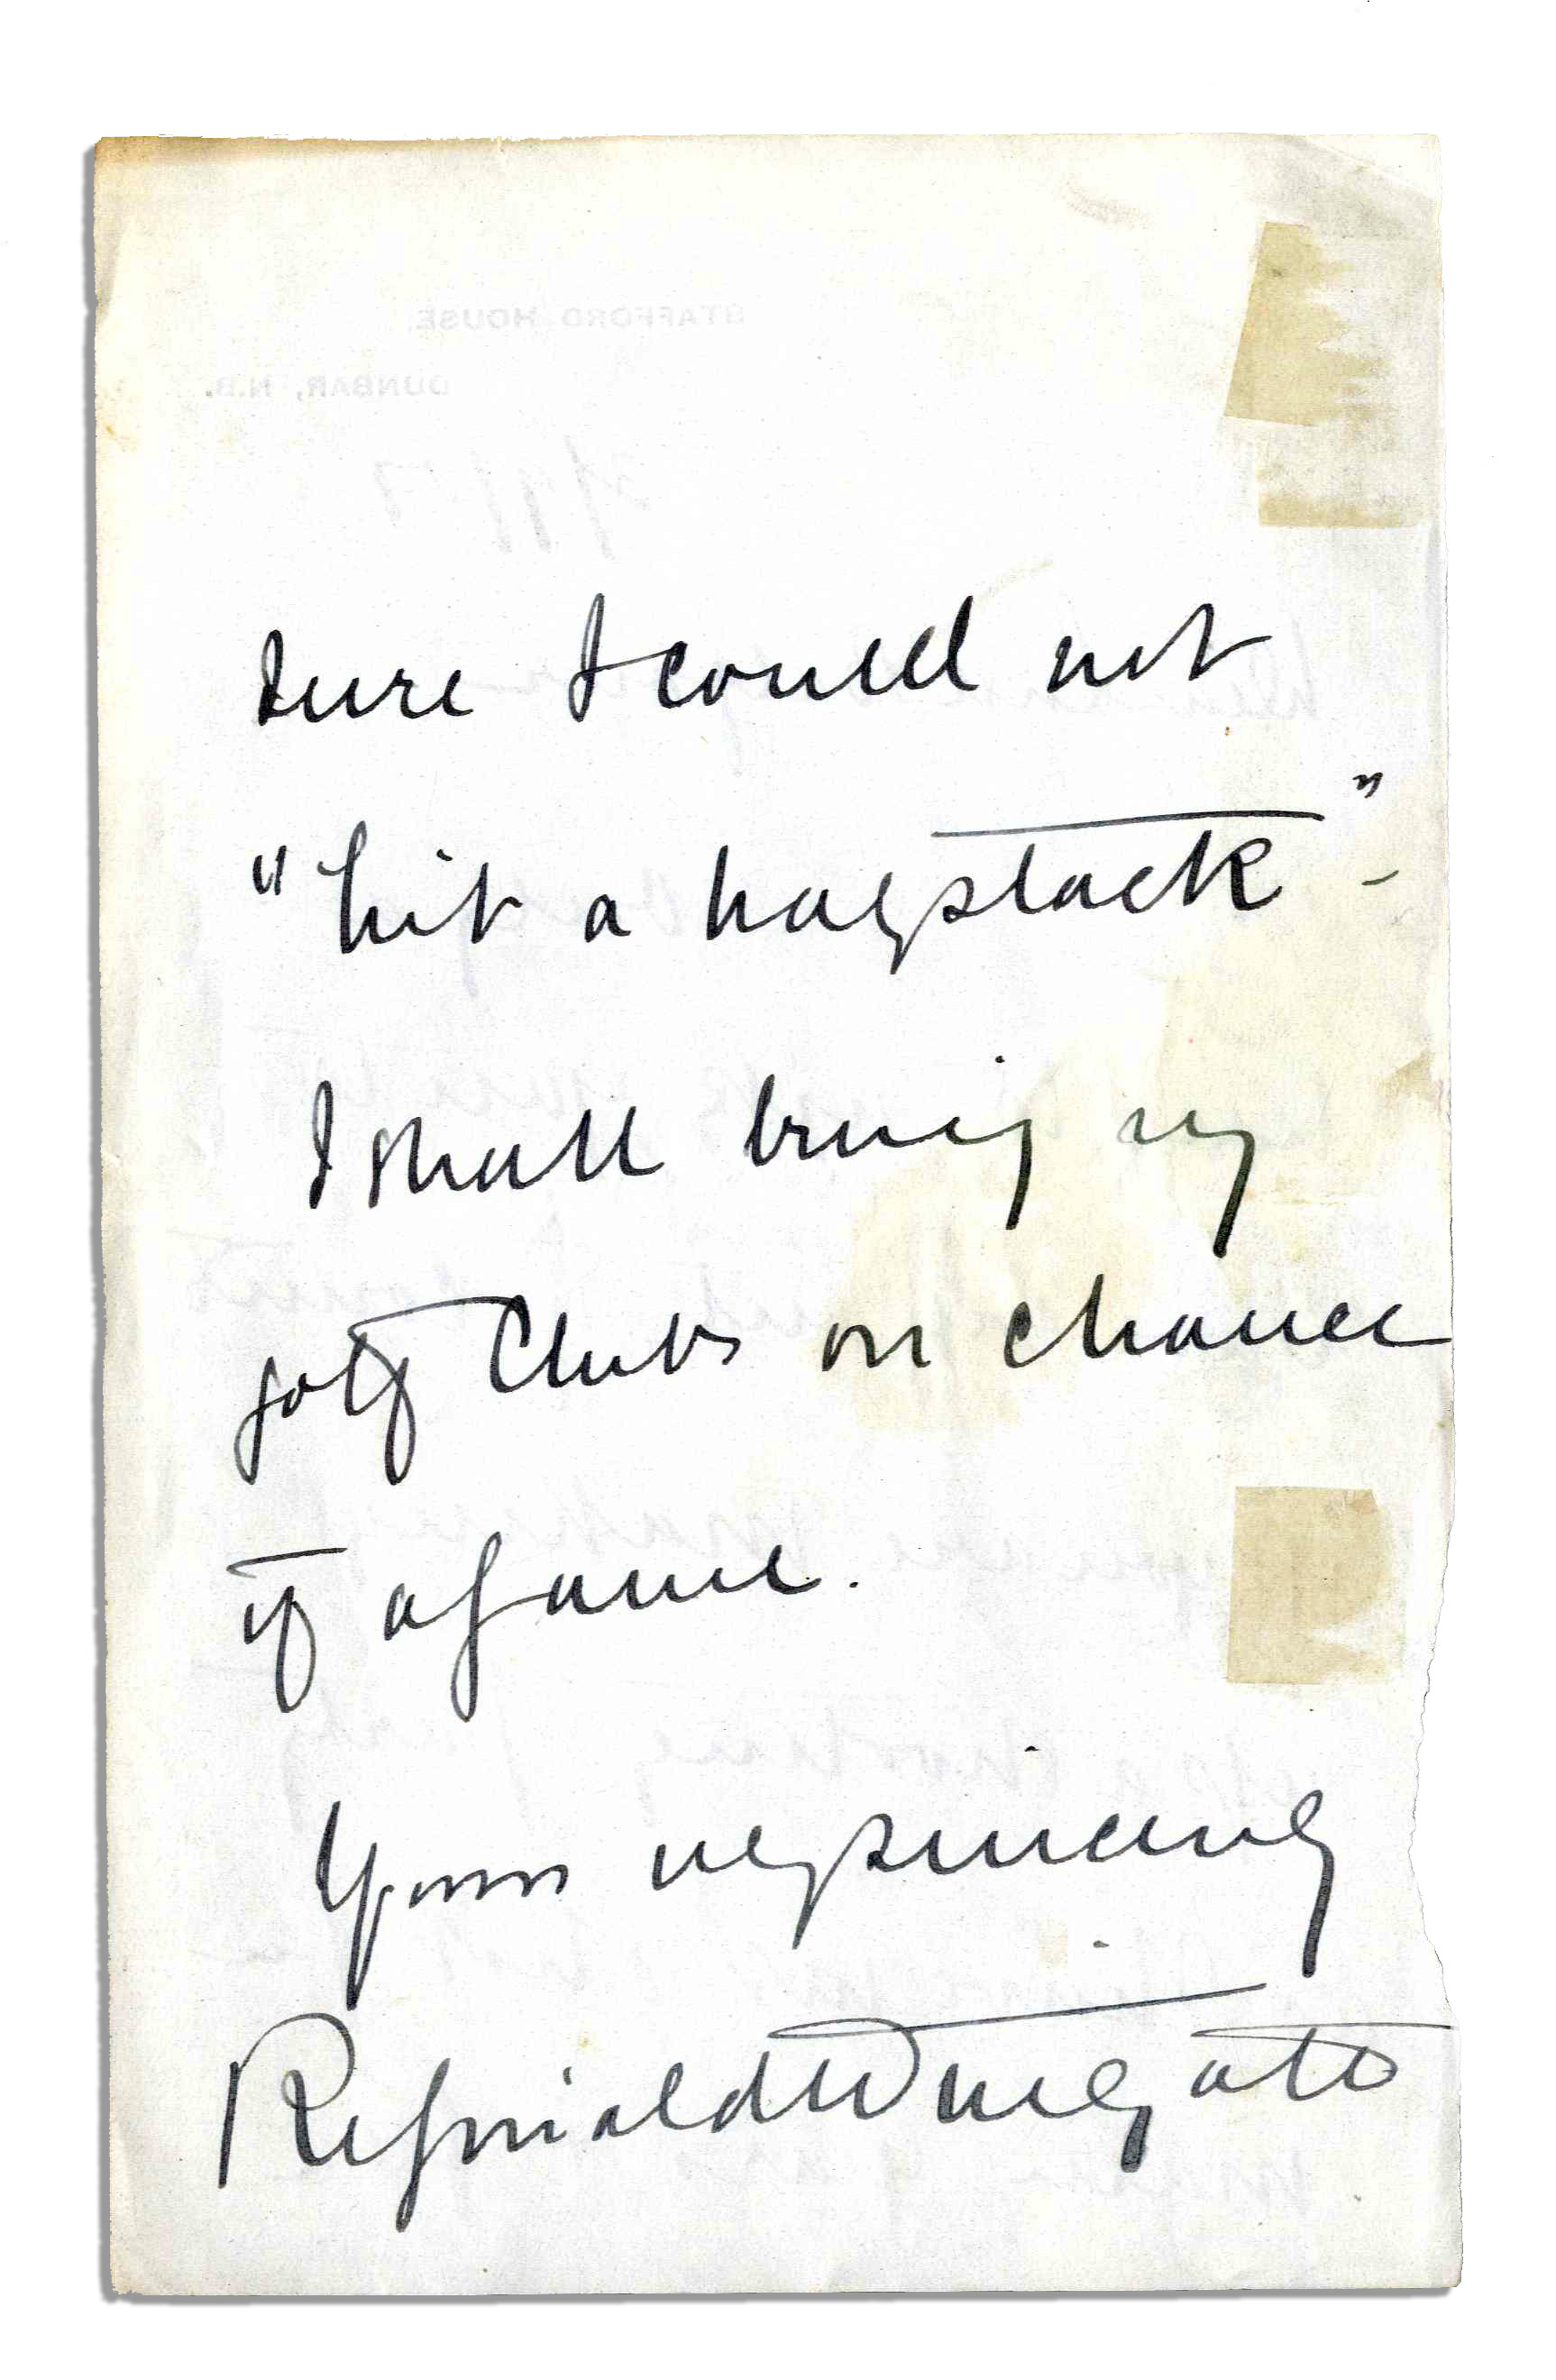 STAFFORD HOUSE,
DUNBAR, N.B.
sure I could not
"hit a haystack" -
I shall bring my
golf Clubs on chance
of a game.
Yours very sincerely
Reginald Wingate